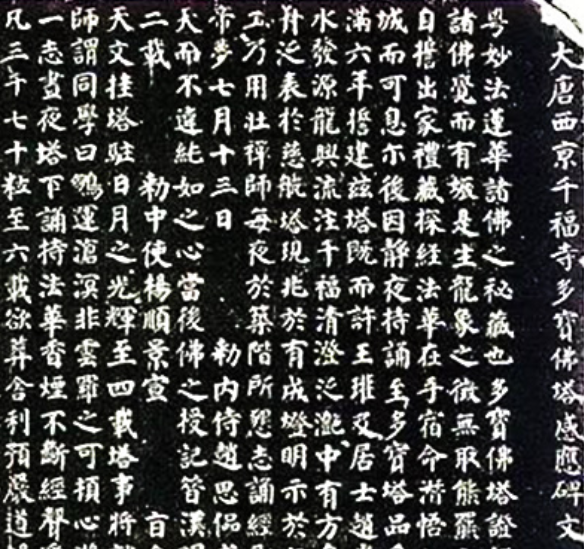 大唐西京千福寺多寶佛塔感應碑文
粵妙法蓮華諸佛之秘藏也多寶佛塔證
諸佛覺而有娠是生龍象之徵無取熊羆
自誓出家禮藏探經法華在手宿命潛悟
城而可息尒後因靜夜持誦至多寶塔品
滿六年誓建茲塔既而許王瓘及居士趙
水發源龍興流注千福清澄泛灔中有方
舟泛表於慈航塔現兆於有成燈明示於
工乃用壯禪師每夜於築階所懇志誦經
帝夢七月十三日 勑內侍趙思侃
天而不違純如之心當後佛之授記昔漢明
二載 勑中使楊順景宣 旨
天文挂塔駐日月之光輝至四載塔事將
師謂同學曰鵬運滄溟非雲羅之可頓心
一志晝夜塔下誦持法華香煙不斷經聲
凡三千七十粒至六載欲葬舍利預嚴道